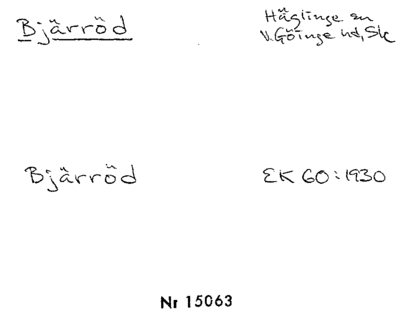 Bjärröd
Häglinge sn
V. Göinge hd, Sk
Bjärröd
EK 60:1930
Nr 15063